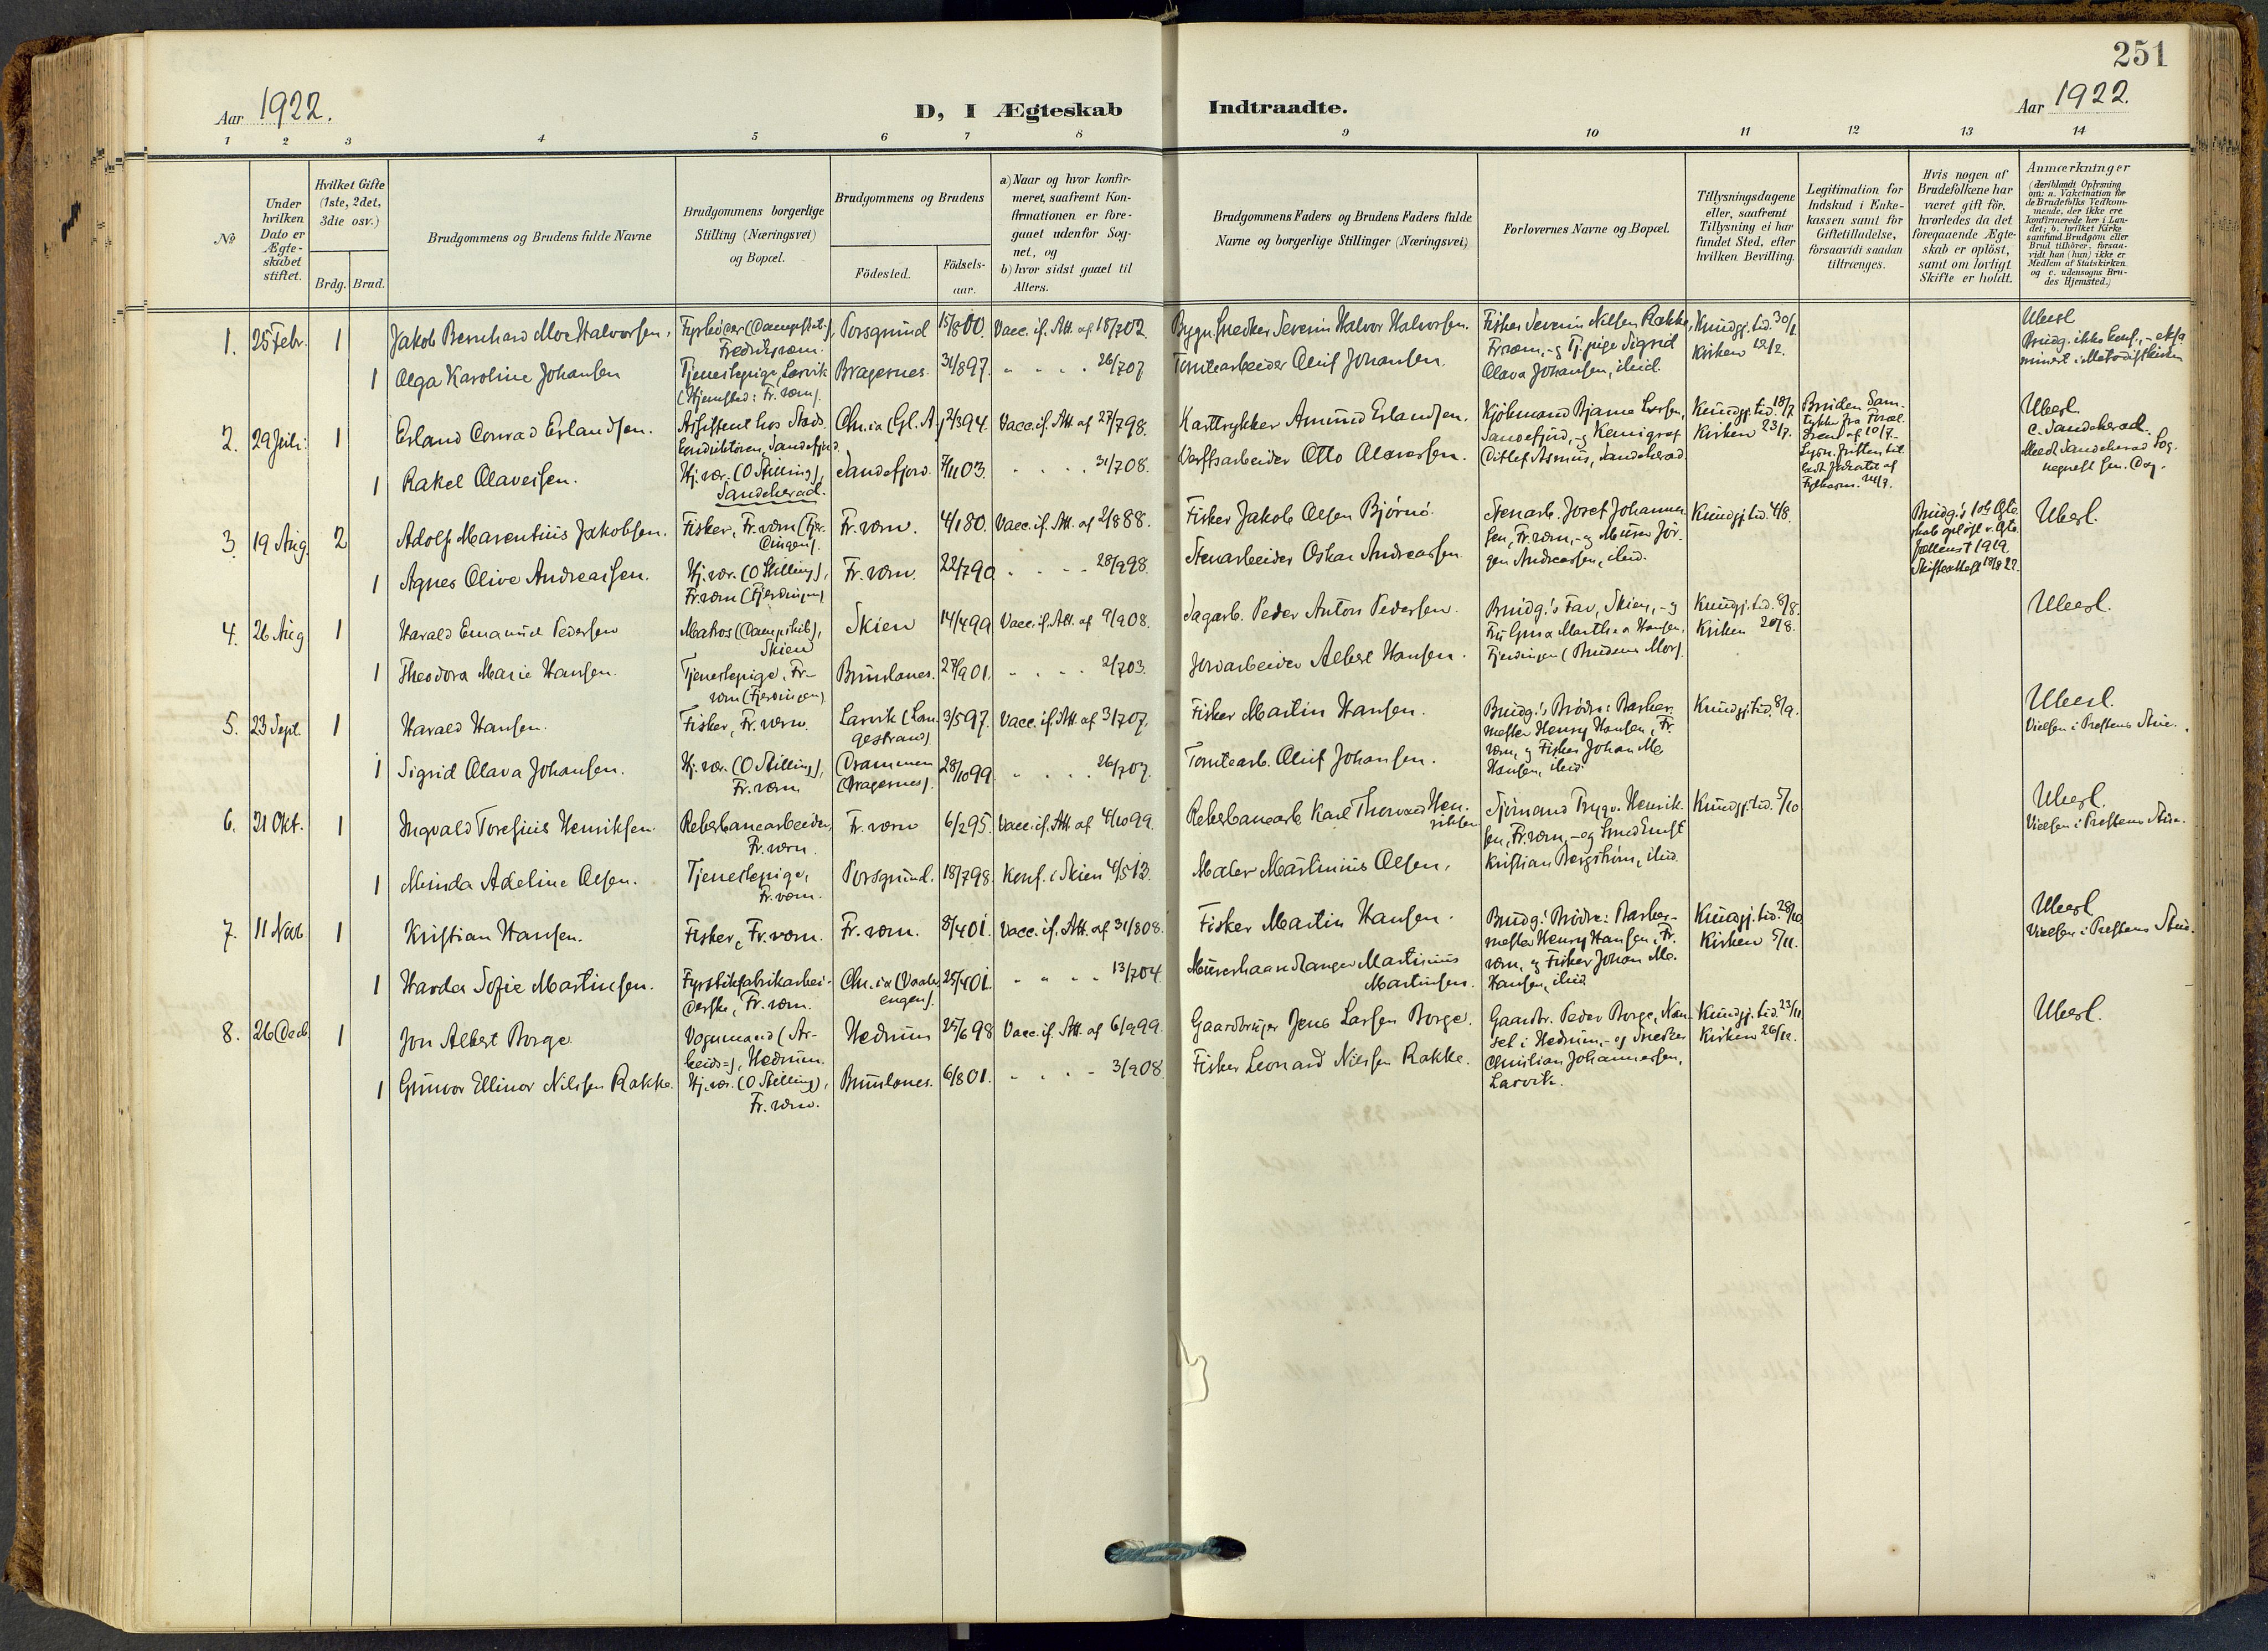 251
Aar 1922.
D, I Ægteskab Indtraadte.
Aar 1922.
1 2 3 4 5 6 7 8 9 10 11 12 13 14
No
Under hvilken Dato er Ægteskabet stiftet.
Hvilket Gifte (1ste, 2det, 3die osv.)
Brdg. Brud.
Brudgommens og Brudens fulde Navne
Brudgommens borgerlige Stilling (Næringsvei) og Bopæl.
Brudgommens og Brudens
Födested.
Födsels-aar.
a) Naar og hvor konfir-
meret, saafremt Kon-
firmationen er fore-
gaaet udenfor Sog-
net, og
b) hvor sidst gaaet til
Alters.
Brudgommens Faders og Brudens Faders fulde
Navne og borgerlige Stillinger (Næringsvei)
Forlovernes Navne og Bopæl.
Tillysningsdagene
eller, saafremt
Tillysning ei har
fundet Sted, efter
hvilken Bevilling.
Legitimation for
Indskud i Enke-
kassen samt for
Giftetilladelse,
forsaavidt saadan
tiltrænges.
Hvis nogen af
Brudefolkene har
været gift för,
hvorledes da det
foregaaende Ægte-
skab er oplöst,
samt om lovligt
Skifte er holdt.
Anmærkninger
(deriblandt Oplysning
om: a. Vakcination for
de Brudefolks Vedkom-
mende, der ikke ere
konfirmerede her i Lan-
det; b. hvilket Kirke-
samfund Brudgom eller
Brud tilhörer, forsaa-
vidt han (hun) ikke er
Medlem af Statskirken
og c. udensogns Bru-
des Hjemsted.)
1. 25 Febr. 1 Jakob Bernhard Moe Halvorsen, Fyrböder (Dampskib.), Fredriksværn. Porsgrund 15/8 00. Vacc. if. Att. af 18/7 02. Bygn. snedker Severin Halvor Halvorsen. Fisker Severin Nilsen Rakke, Fr.værn, - og Tj.pige Sigrid Olava Johansen, ibid. Kundgj. tid. 30/1. Kirken 12/2. Ubesl. Brudg. ikke konf., - eksa minert i Metodistkirken
1 Olga Karoline Johansen Tjenestepige, Larvik (Hjemsted: Fr. værn). Bragernes. 31/8 97. " " " " 26/7 07. Tomtearbeider Oluf Johansen.
2. 29 Juli. 1 Erland Conrad Erlandsen. Assistent hos Stads konduktören, Sandefjord. Chr.ia (Gl. A.) 2/3 94. Vacc. if. Att. af 27/7 98. Karttrykker Amund Erlandsen. Kjöbmand Bjarne Larsen, Sandefjord, - og Kemigraf Ditlef Asmus, Sandeherad Kundgj. tid. 18/7 Kirken 23/7. Brudens Sam- tykke fra Foræl- Ubesl. c. Sandeherad.
1 Rakel Olaveisen. Hj. vær. (O Stilling), Sandeherad. Sandefjord. 7/11 03. " " " 31/7 08. Verftsarbeider Otto Olavesen.
3. 19 Aug. 2 Adolf Marentius Jakobsen. Fisker, Fr. værn (Fjerdingen). Fr. værn. 4/1 80. Vacc. if. Att. af 2/8 88. Fisker Jakob Olsen Bjørnö. Stenarb. Josef Johannessen, Fr. værn, - og Murer Jörgen Andreassen, ibid. Kundgj. tid. 4/8. Brudg.'s 1ste Ægte- skab oplöst v. Ægte- fællens † 1919 Skifteattest 18/8 22. Ubesl.
1 Agnes Olive Andreassen. Hj. vær. (O Stilling), Fr. værn (Fjerdingen) Fr. værn. 22/7 90. " " " " 28/9 98. Stenarbeider Oskar Andreassen.
4. 26 Aug 1 Harald Emanuel Pedersen Matros (Dampskib), Skien Skien 14/4 99 Vacc. if. Att. af 9/9 08. Sagarb. Peder Anton Pedersen. Brudg.'s Far, Skien, - og Fru Anna Marthea Hansen, Fjerdingen (Brudens Mor). Kundgj. tid. 8/8. Kirken 20/8. Ubesl.
1 Theodora Marie Hansen. Tjenestepige, Fr- værn (Fjerdingen) Brunlanes. 27/9 01. " " " " 2/7 03. Jordarbeider Albert Hansen.
5. 23 Sept. 1 Harald Hansen. Fisker, Fr. værn. Larvik (Lan- gestrand). 3/5 97. Vacc. if. Att. af 3/7 07. Fisker Martin Hansen. Brudg.'s Brödre: Barber- mester Henry Hansen, Fr. værn, og Fisker Johan Ma. Hansen, ibid. Kundgj. tid. 8/9. Ubesl. Vielsen i Prestens Stue.
1 Sigrid Olava Johansen. Hj. vær. (O Stilling), Fr. værn Drammen (Bragernes). 28/10 99. " " " " 26/7 07. Tomtearb. Oluf Johansen.
6. 21 Okt. 1 Ingvald Toresius Henriksen. Reberbanearbeider, Fr. værn. Fr. værn 6/2 95. Vacc. if. Att. af 4/10 99. Reberbanearb. Karl Thorvald Hen- riksen Sjömand Trygve Henrik- sen, Fr. værn, - og Smed Ernst Kristian Bergström, ibid. Kundgj. tid. 5/10 Ubesl. Vielsen i Prestens Stue.
1 Minda Adeline Olsen. Tjenestepige, Fr. værn. Porsgrund. 18/7 98. Konf. i Skien 4/5 13. Maler Martinius Olsen.
7. 11 Nov. 1 Kristian Hansen. Fisker, Fr. værn. Fr. værn. 8/4 01. Vacc. if. Att. af 31/8 08. Fisker Martin Hansen. Brudg.' Brödre: Barber- mester Henry Hansen, Fr. værn, og Fisker Johan Ma. Hansen, ibid. Kundgj. tid. 28/10 Kirken 5/11. Ubesl Vielsen i Prestens Stue.
1 Harda Sofie Martinsen. Fyrstikfabrikarbei- derske, Fr. værn. Chr.ia (Vaaler- engen). 25/4 01. " " " " 13/7 04. Murerhaandlanger Martinius Martinsen.
8. 26 Decb. 1 Jon Albert Borge. Vognmand (Ar- beids-), Hedrum. Hedrum 25/6 98 Vacc. if. Att. af 6/9 99. Gaardbruger Jens Larsen Borge. Gaardbr. Peder Borge, Nan- set i Hedrum, - og Snedker Christian Johannessen, Larvik. Kundgj. tid. 23/11 Kirken 26/11. Ubesl.
1 Gunvor Ellinor Nilsen Rakke. Hj. vær. (O Stilling), Fr. værn. Brunlanes. 6/8 01. " " " " 3/9 08. Fisker Leonard Nilsen Rakke.